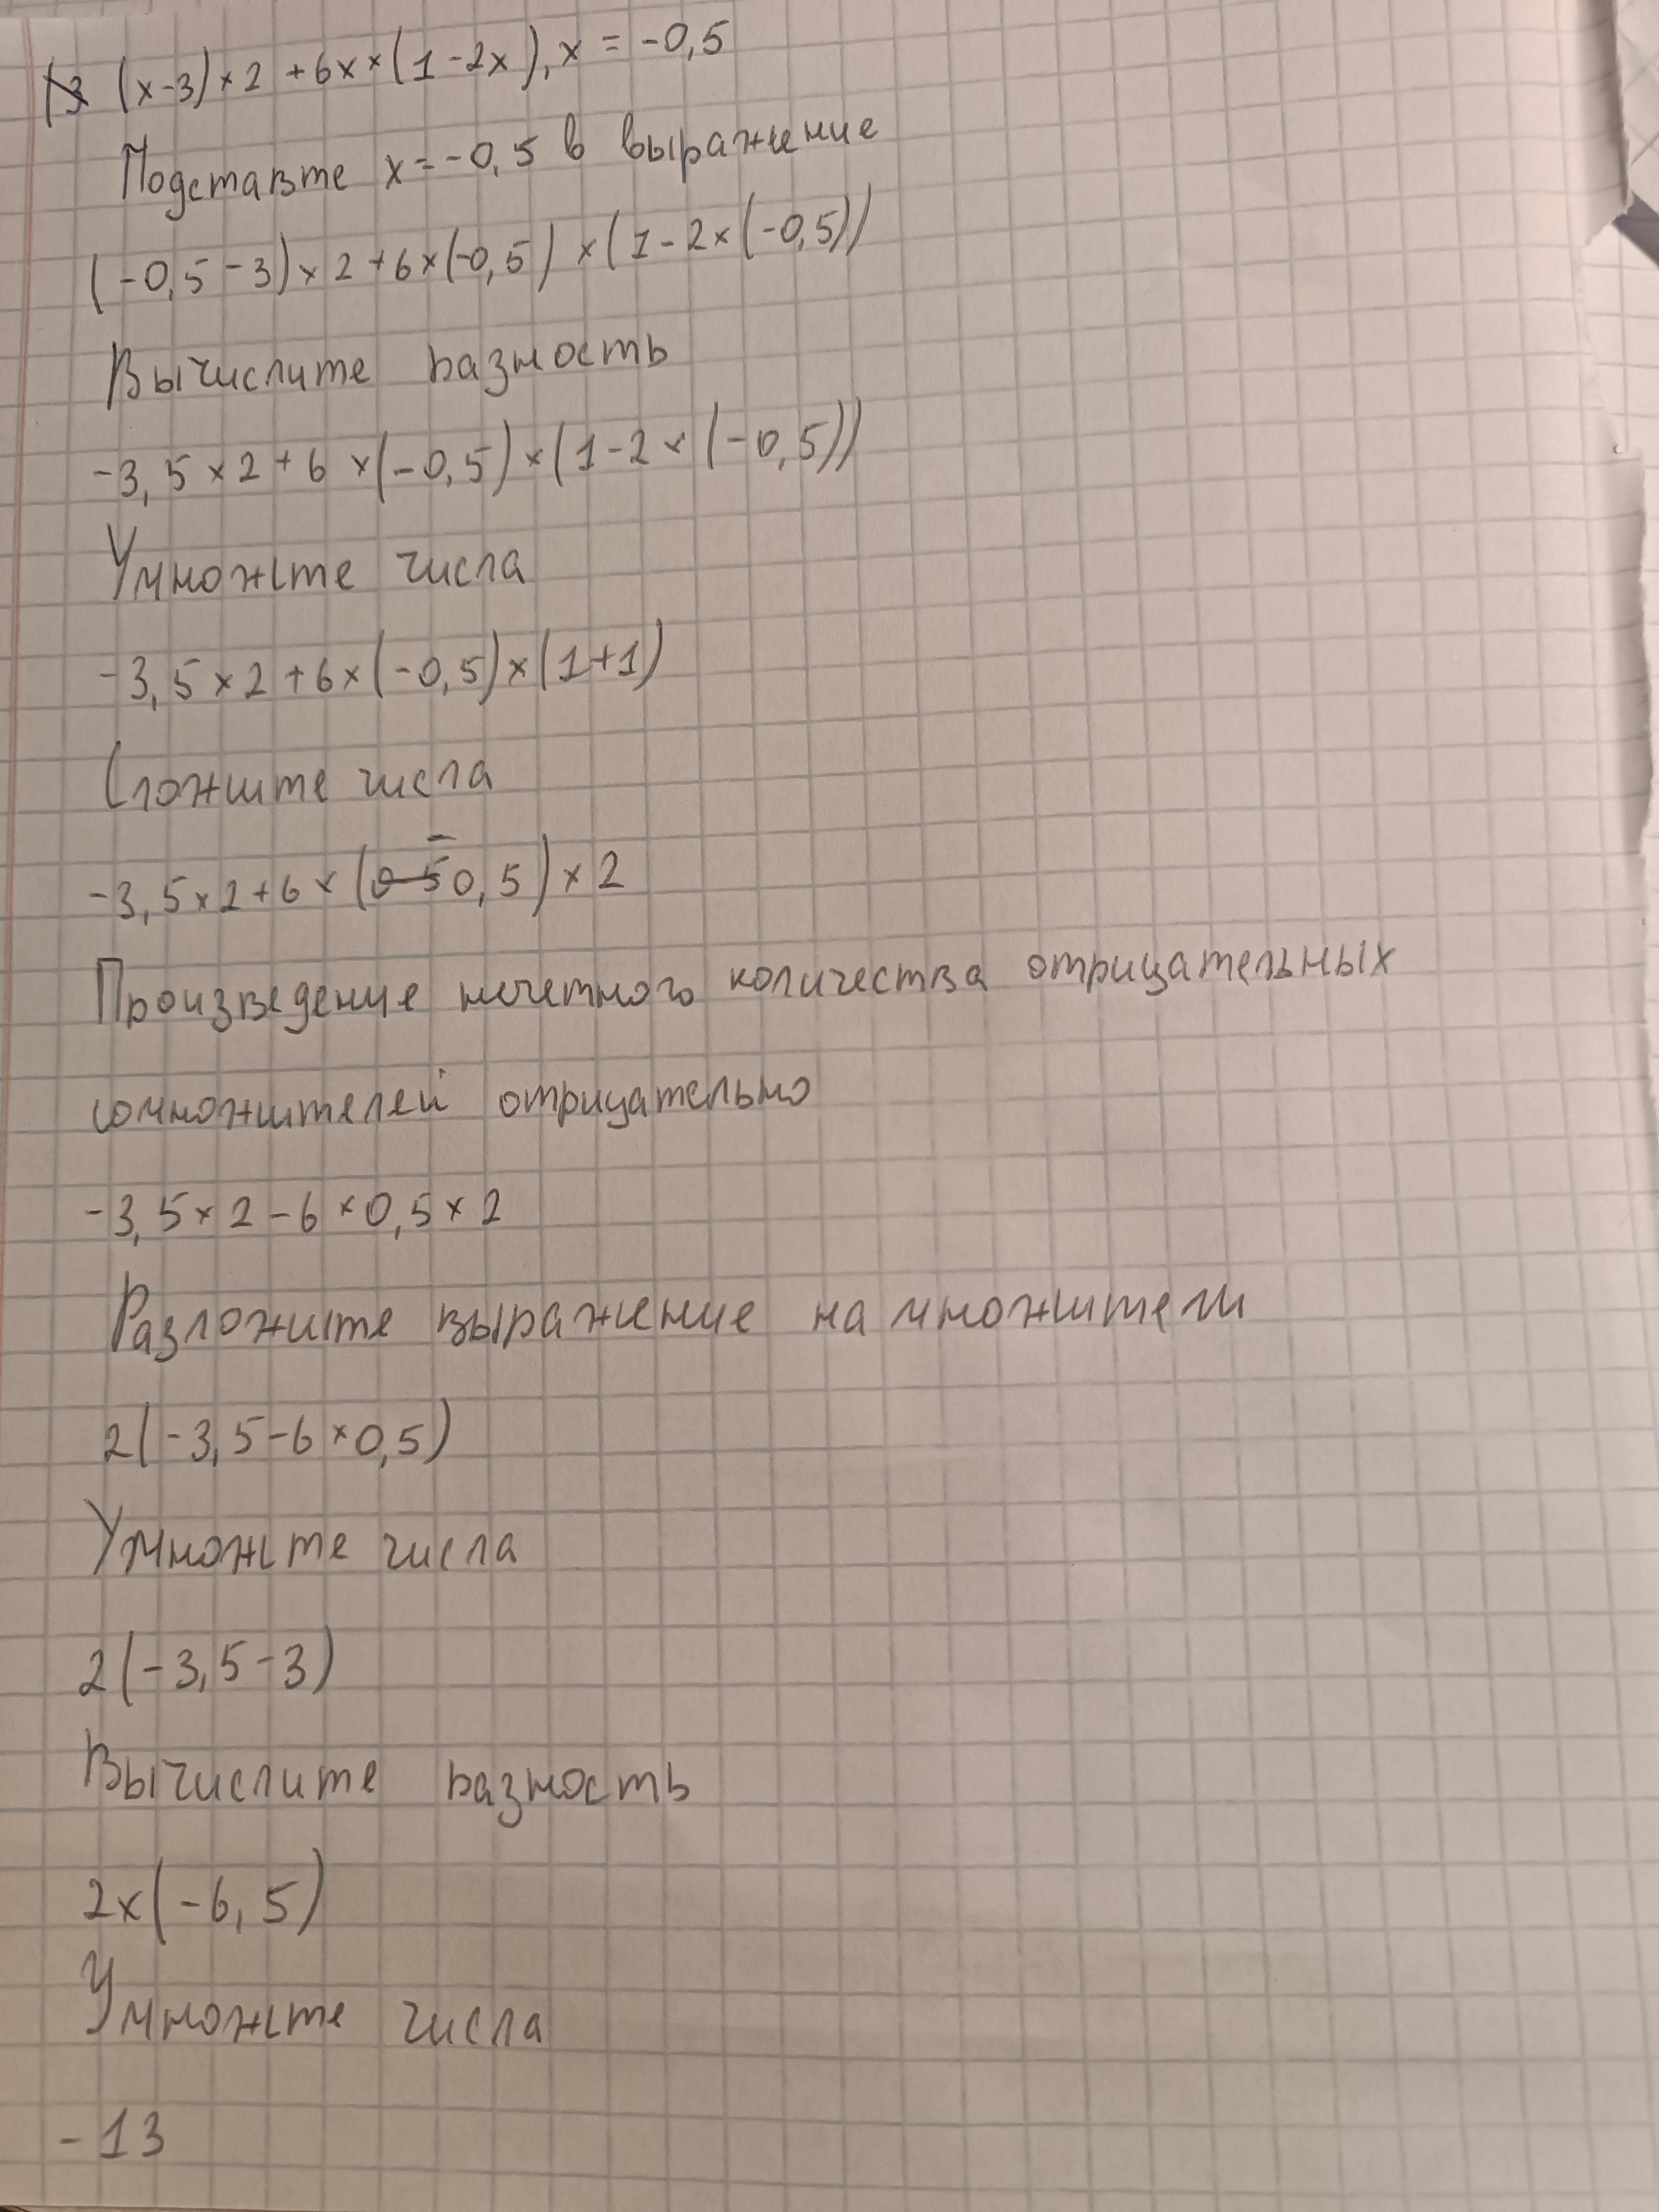 (x-3)×2+6x×(1-2x), x=-0,5
Подставте x=-0,5 в выражение
(-0,5-3)×2+6×(-0,5)×(1-2×(-0,5))
Вычислите разность
-3,5×2+6×(-0,5)×(1-2×(-0,5))
Умножте числа
-3,5×2+6×(-0,5)×(1+1)
Сложите числа
-3,5×2+6×(-0,5)×2
Произведение нечетного количества отрицательных
сомножителей отрицательно
-3,5×2-6×0,5×2
Разложите выражение на множители
2(-3,5-6×0,5)
Умножте числа
2(-3,5-3)
Вычислите разность
2×(-6,5)
Умножте числа
-13